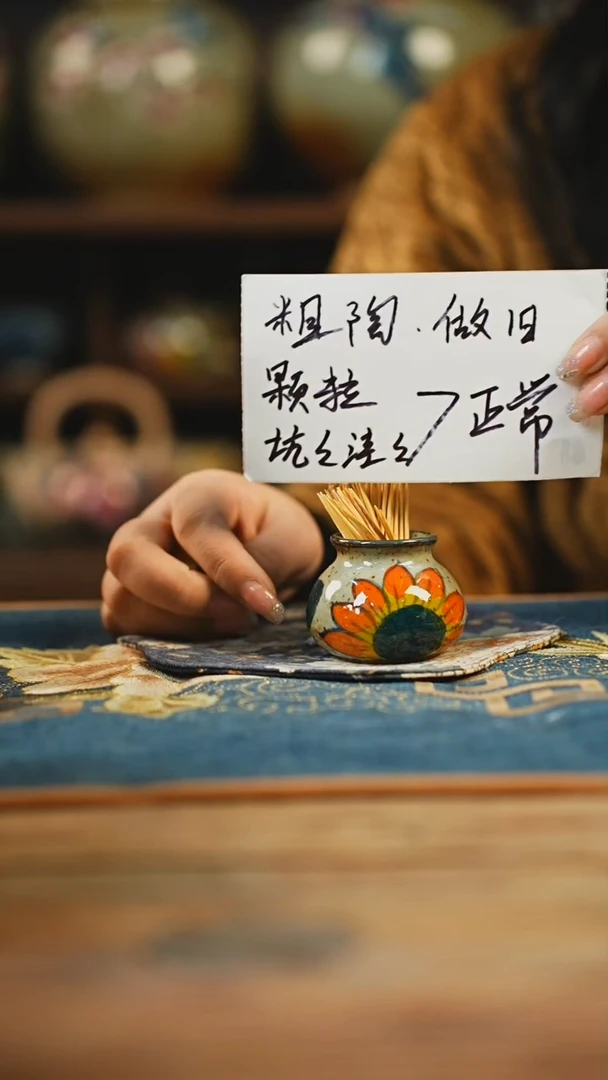 粗陶.做旧
颗粒
坑坑洼洼 正常